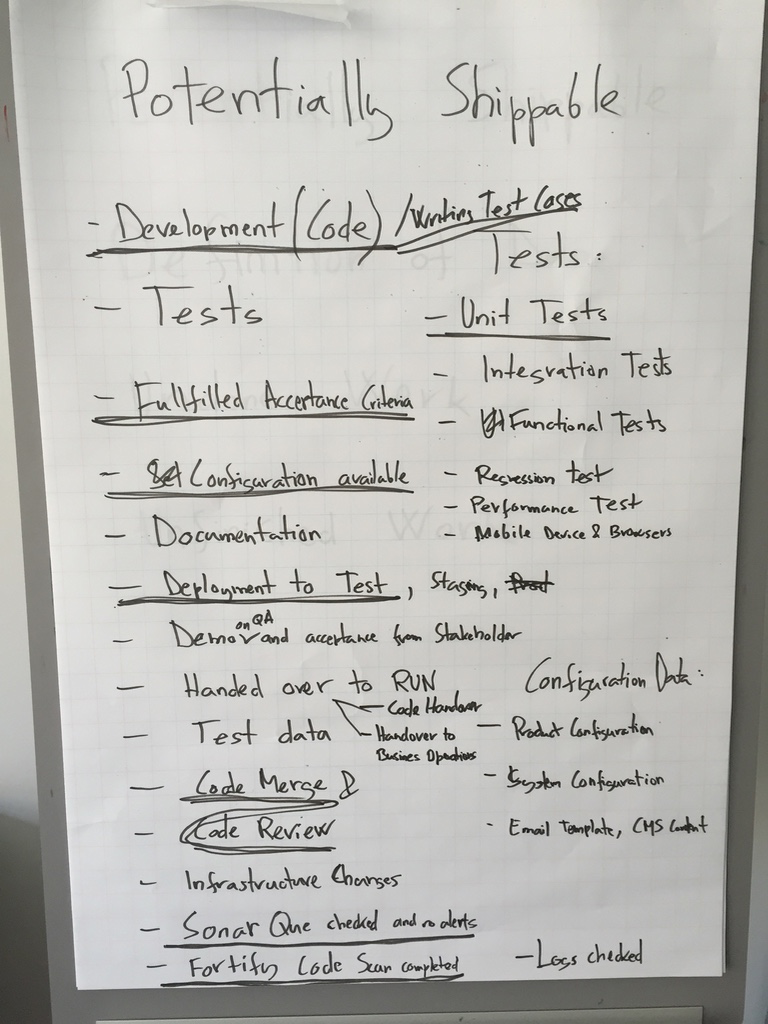 Potentially Shippable
- Development (Code) /Writing Test Cases
- Tests
- Fullfilled Acceptance Criteria
- Configuration available
- Documentation
- Deployment to Test, Staging, Prod
- Demo on QA and acceptance from Stakeholder
- Handed over to RUN
- Code Handover
- Handover to
Business Operations
- Test data
- Code Merge &
- Code Review
- Infrastructure Changes
- Sonar Que checked and no alerts
- Fortify Code Scan completed
Tests:
- Unit Tests
- Integration Tests
- Functional Tests
- Regression test
- Performance Test
- Mobile Device & Browsers
Configuration Data:
- Product Configuration
- System Configuration
- Email Template, CMS Content
- Logs checked